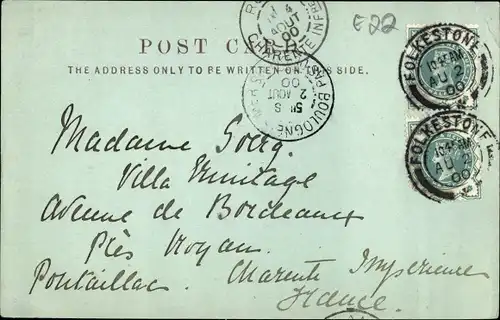 E22
POST CARD.
THE ADDRESS ONLY TO BE WRITTEN ON THIS SIDE.
4
AOUT
00
CHARENTE INFRE
BOULOGNE
5E S
2
AOUT
00
FOLKESTONE
10.45 AM
AU 2
00
FOLKESTONE
10.45 AM
AU 2
00
Madame Soerg
Villa Ermitage
Avenue de Bordeaux
Près Royan.
Pontaillac. Charente Impérieure
France.